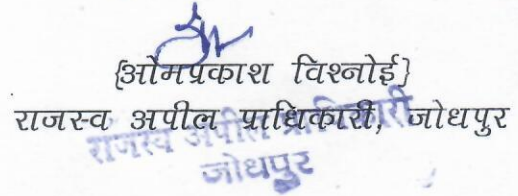 {ओमप्रकाश विश्नोई}
राजस्व अपील प्राधिकारी, जोधपुर
राजस्व अपील प्राधिकारी
जोधपुर